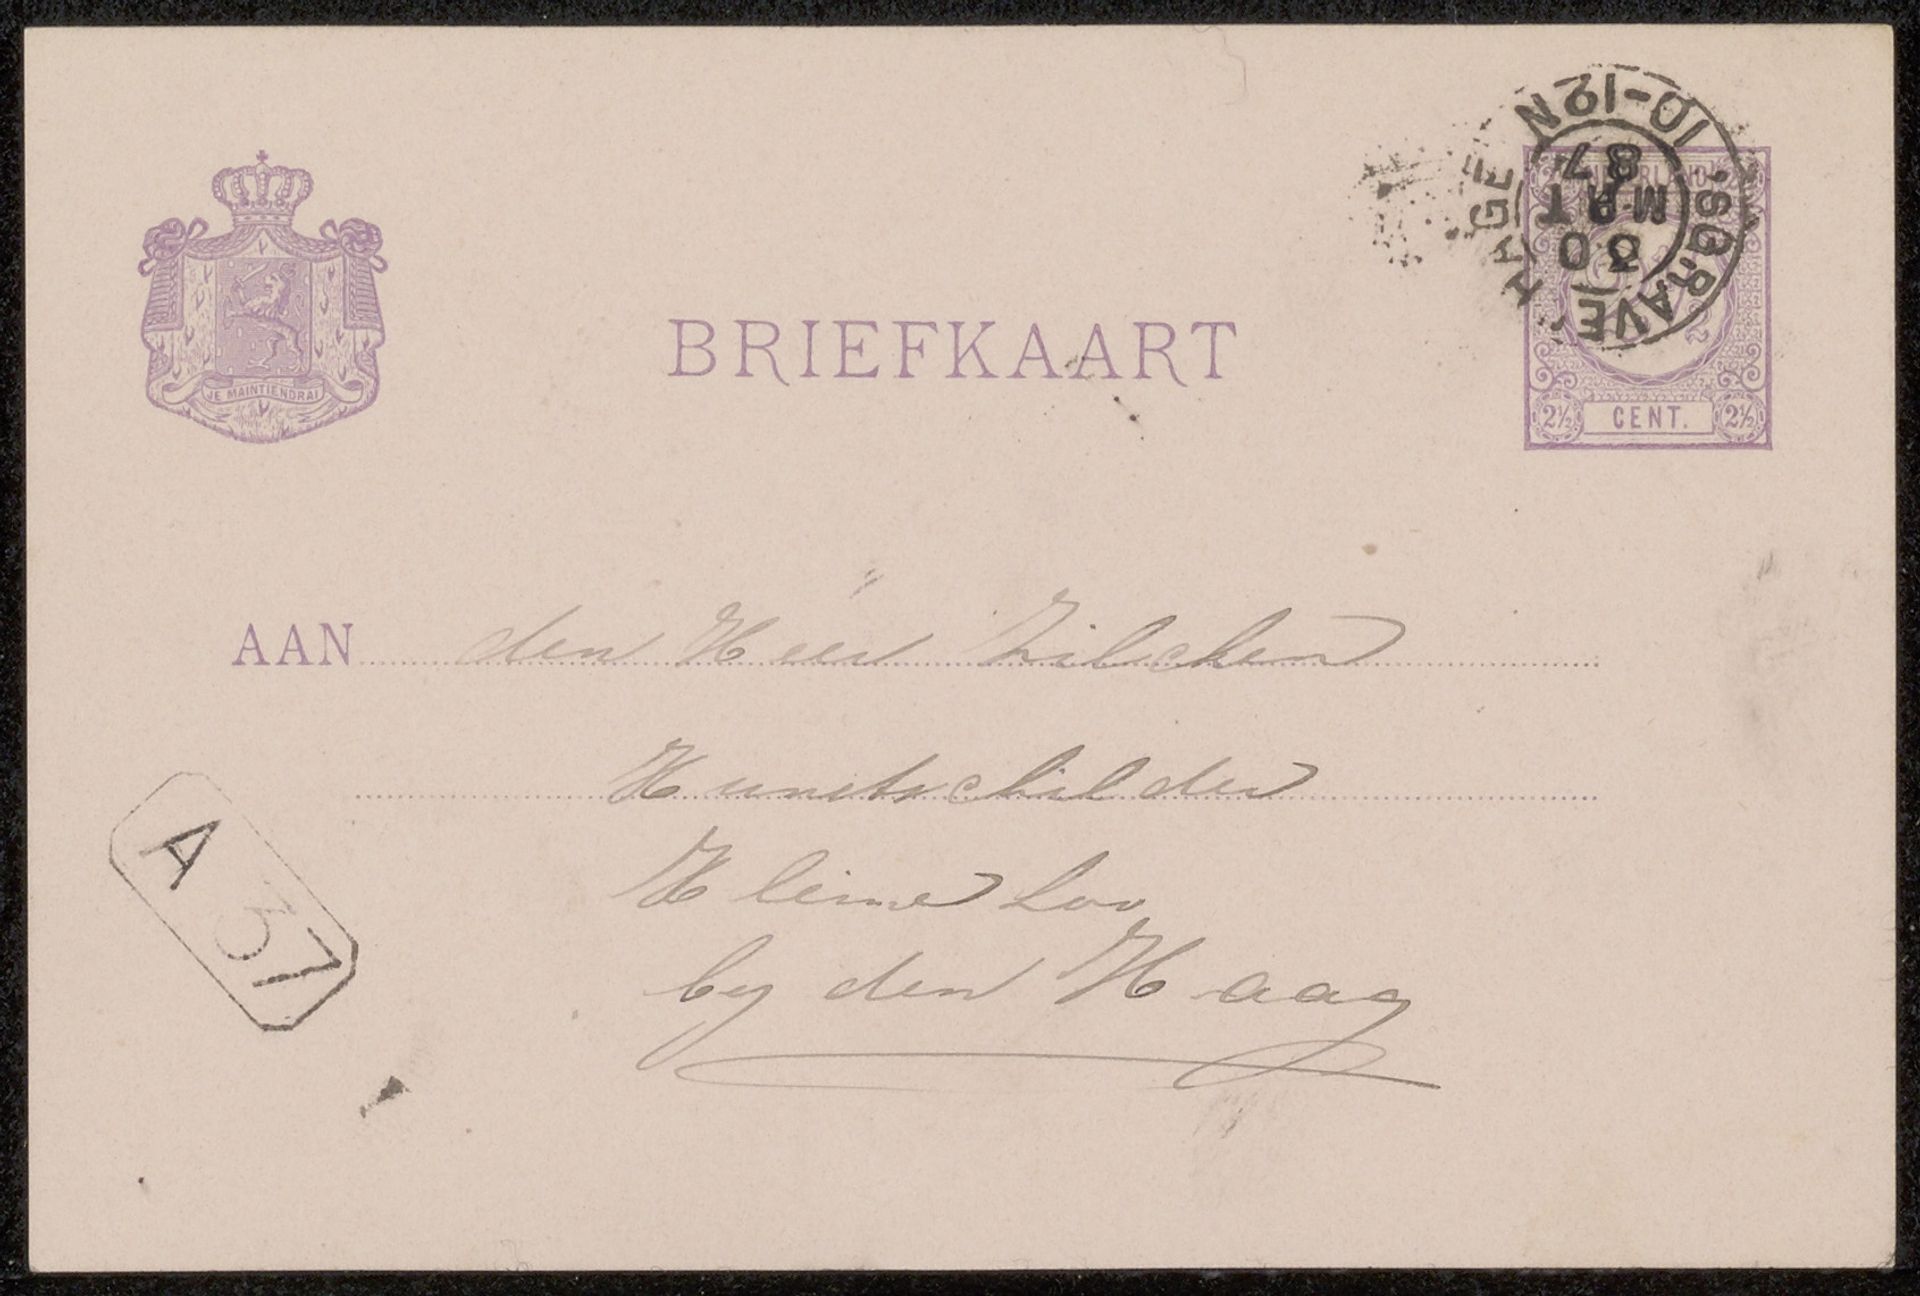 'SGRAVENHAGE
10-12N
30
MRT
87
NEDERLAND
2½
BRIEFKAART
JE MAINTIENDRAI
2½ CENT. 2½
AAN den Heer Zilcken
Kunstschilder
Kleine Loo
by den Haag
A 37